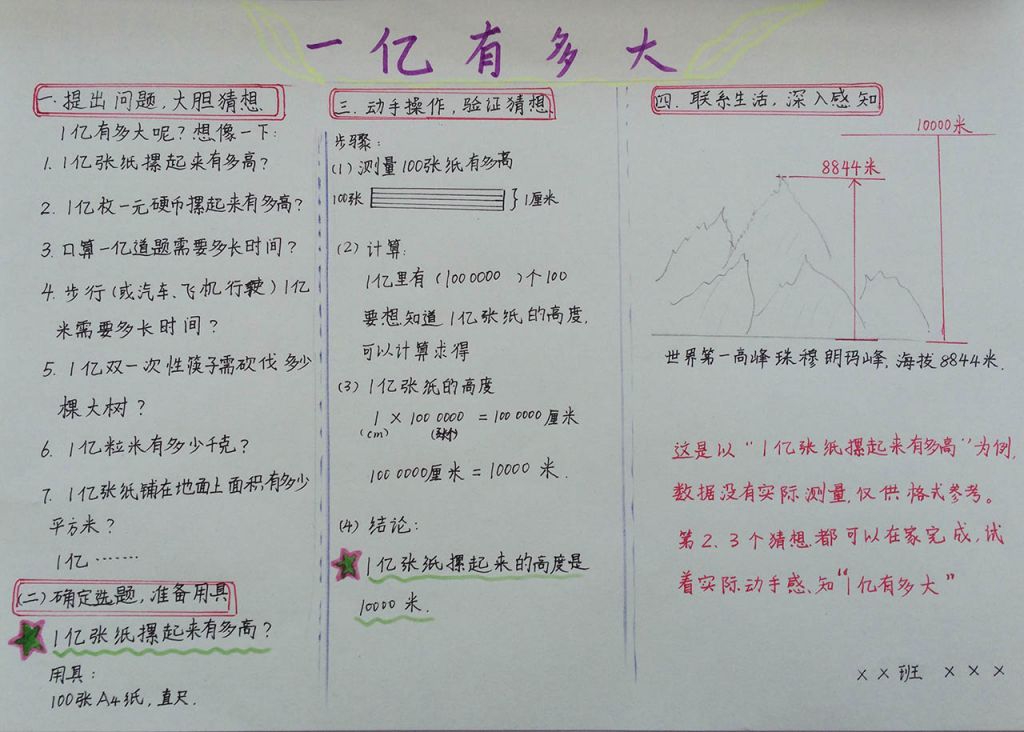 一亿有多大
一.提出问题,大胆猜想
1亿有多大呢?想像一下:
1. 1亿张纸摞起来有多高?
2. 1亿枚一元硬币摞起来有多高?
3. 口算一亿道题需要多长时间?
4. 步行(或汽车、飞机行驶)1亿
米需要多长时间?
5. 1亿双一次性筷子需砍伐多少
棵大树?
6. 1亿粒米有多少千克?
7. 1亿张纸铺在地面上面积有多少
平方米?
1亿……
(二)确定选题,准备用具
1亿张纸摞起来有多高?
用具:
100张A4纸,直尺.
三.动手操作,验证猜想
步骤:
(1)测量100张纸有多高
100张 } 1厘米
(2)计算:
1亿里有(1000000 )个100
要想知道1亿张纸的高度,
可以计算求得
(3)1亿张纸的高度
1 × 1000000 = 1000000厘米
(cm)
1000000厘米 = 10000 米.
(4)结论:
1亿张纸摞起来的高度是
10000 米.
四.联系生活,深入感知
10000米
8844米
世界第一高峰珠穆朗玛峰,海拔8844米.
这是以“1亿张纸摞起来有多高”为例,
数据没有实际测量,仅供格式参考。
第2、3个猜想都可以在家完成,试
着实际动手感知“1亿有多大”
××班 ×××